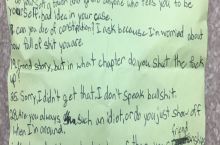 to you
yourself, bad idea in your case.
8. can you die of constipation? I ask because I'm worried about
you full of shit you are.
Good story, but in what chapter do you shut the fuck
up?
Sorry, I didn't get that. I don't speak bullshit.
Are you always such an idiot, or do you just show off
when I'm around.
friend